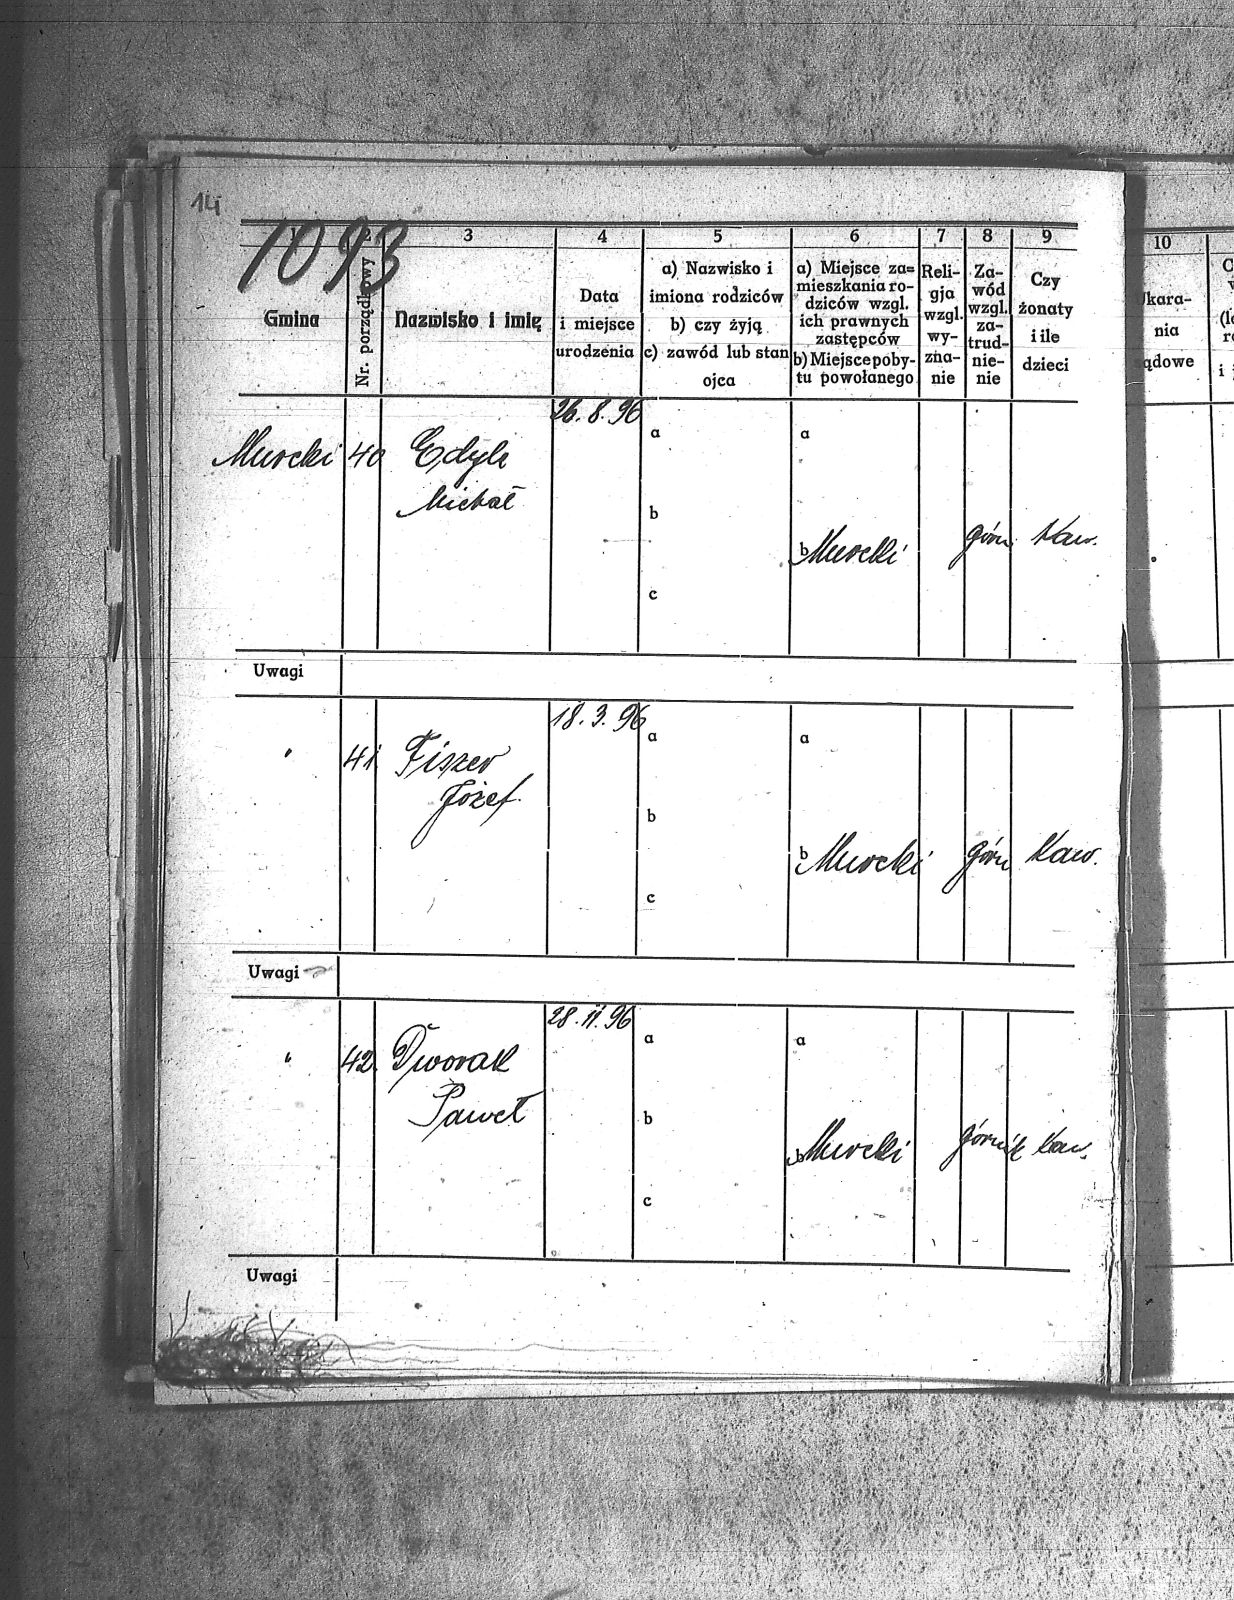 14
1093
1 2 3 4 5 6 7 8 9 10
Gmina
Nr. porządkowy
Nazwisko i imię
Data
i miejsce
urodzenia
a) Nazwisko i
imiona rodziców
b) czy żyją
c) zawód lub stan
ojca
a) Miejsce za=
mieszkania ro-
dziców wzgl.
ich prawnych
zastępców
b) Miejsce poby-
tu powołanego
Reli-
gja
wzgl.
wy-
zna-
nie
Za-
wód
wzgl.
za-
trud-
nie-
nie
Czy
żonaty
i ile
dzieci
Ukara-
nia
sądowe
26.8.96
Murcki 40 Edyk a a
Michał
b
b Murcki górn Kaw.
c
Uwagi
18.3.96
" 41 Fiszer a a
Józef.
b
b Murcki górn Kaw.
c
Uwagi
28.11.96
" 42. Dworak a a
Paweł b
b Murcki górnik Kaw.
c
Uwagi